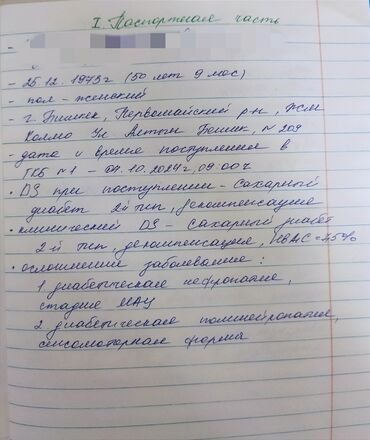 I. Паспортная часть
- 25.12.1973г (50 лет 9 мес)
- пол - женский
- г. Бишкек, Первомайский р-н, жм
Колмо
- дата и время поступления в
ГКБ №1 - 04.10.2024г, 09:00ч
• DS при поступлении - Сахарный
диабет 2й тип, декомпенсация
• клинический DS - Сахарный диабет
2-й тип, декомпенсация,
• осложнение заболевание:
1 диабетическая нефропатия,
стадия МАУ
2 диабетическая полинейропатия,
сенсомоторная форма